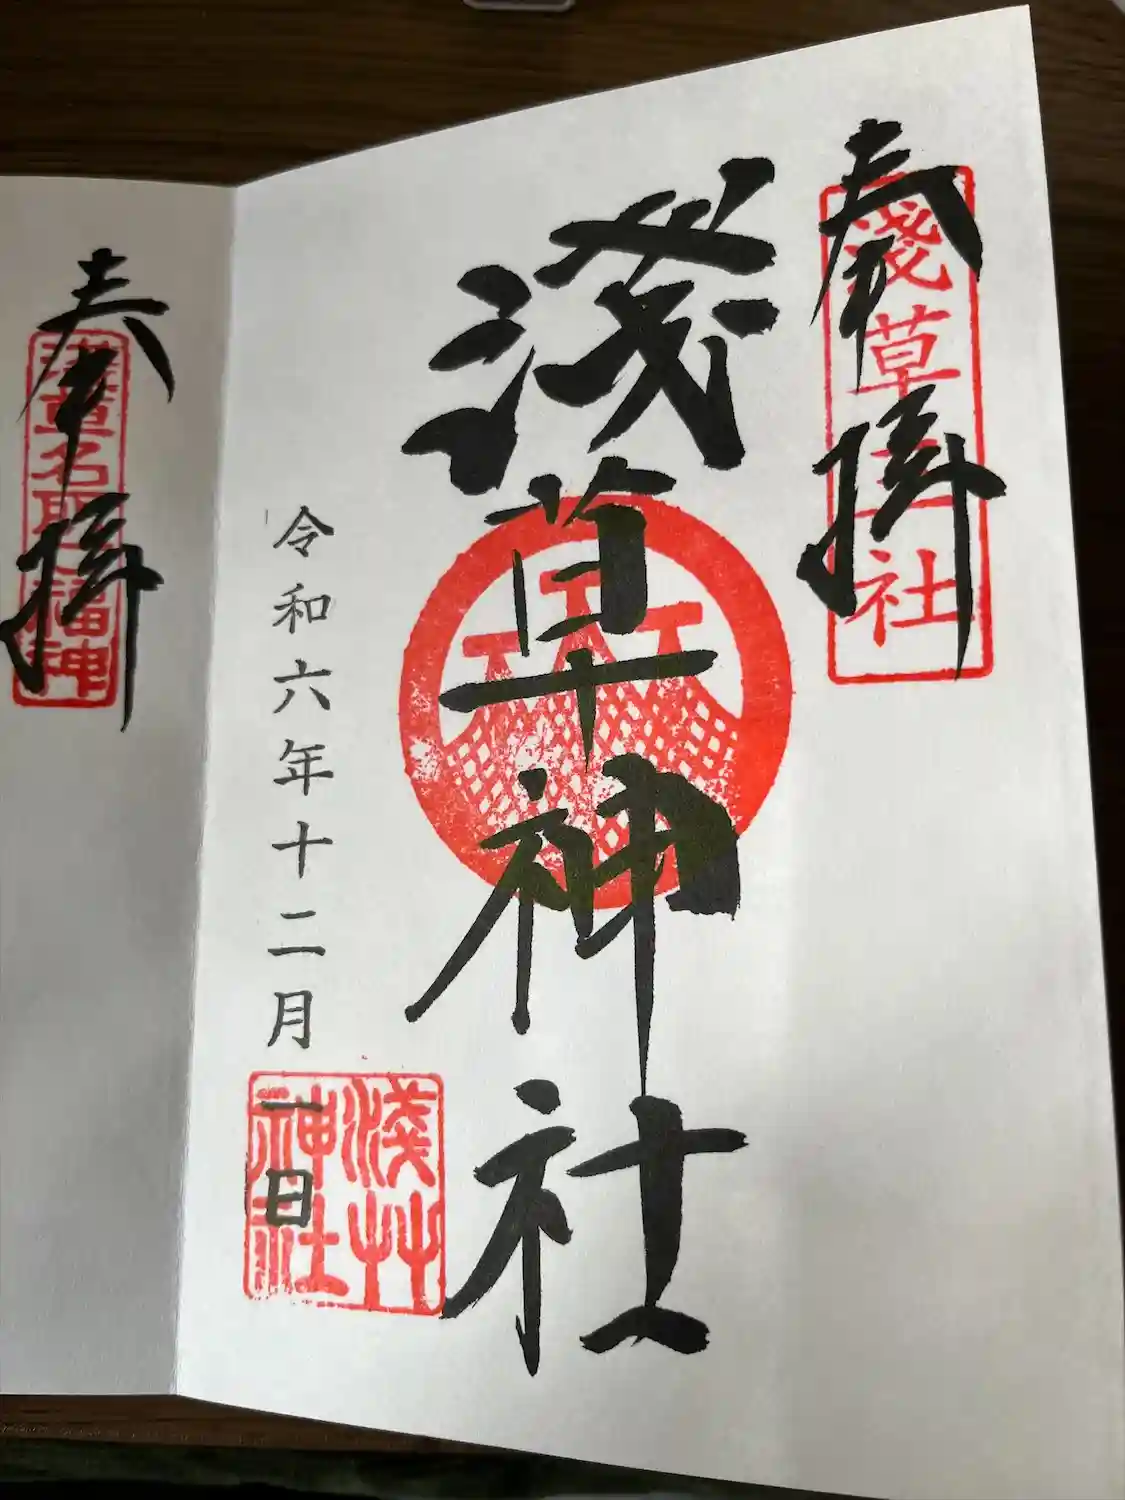 奉拝
淺草三社
淺草神社
令和六年十二月一日
淺艸
神社
奉拝
淺草名所七福神